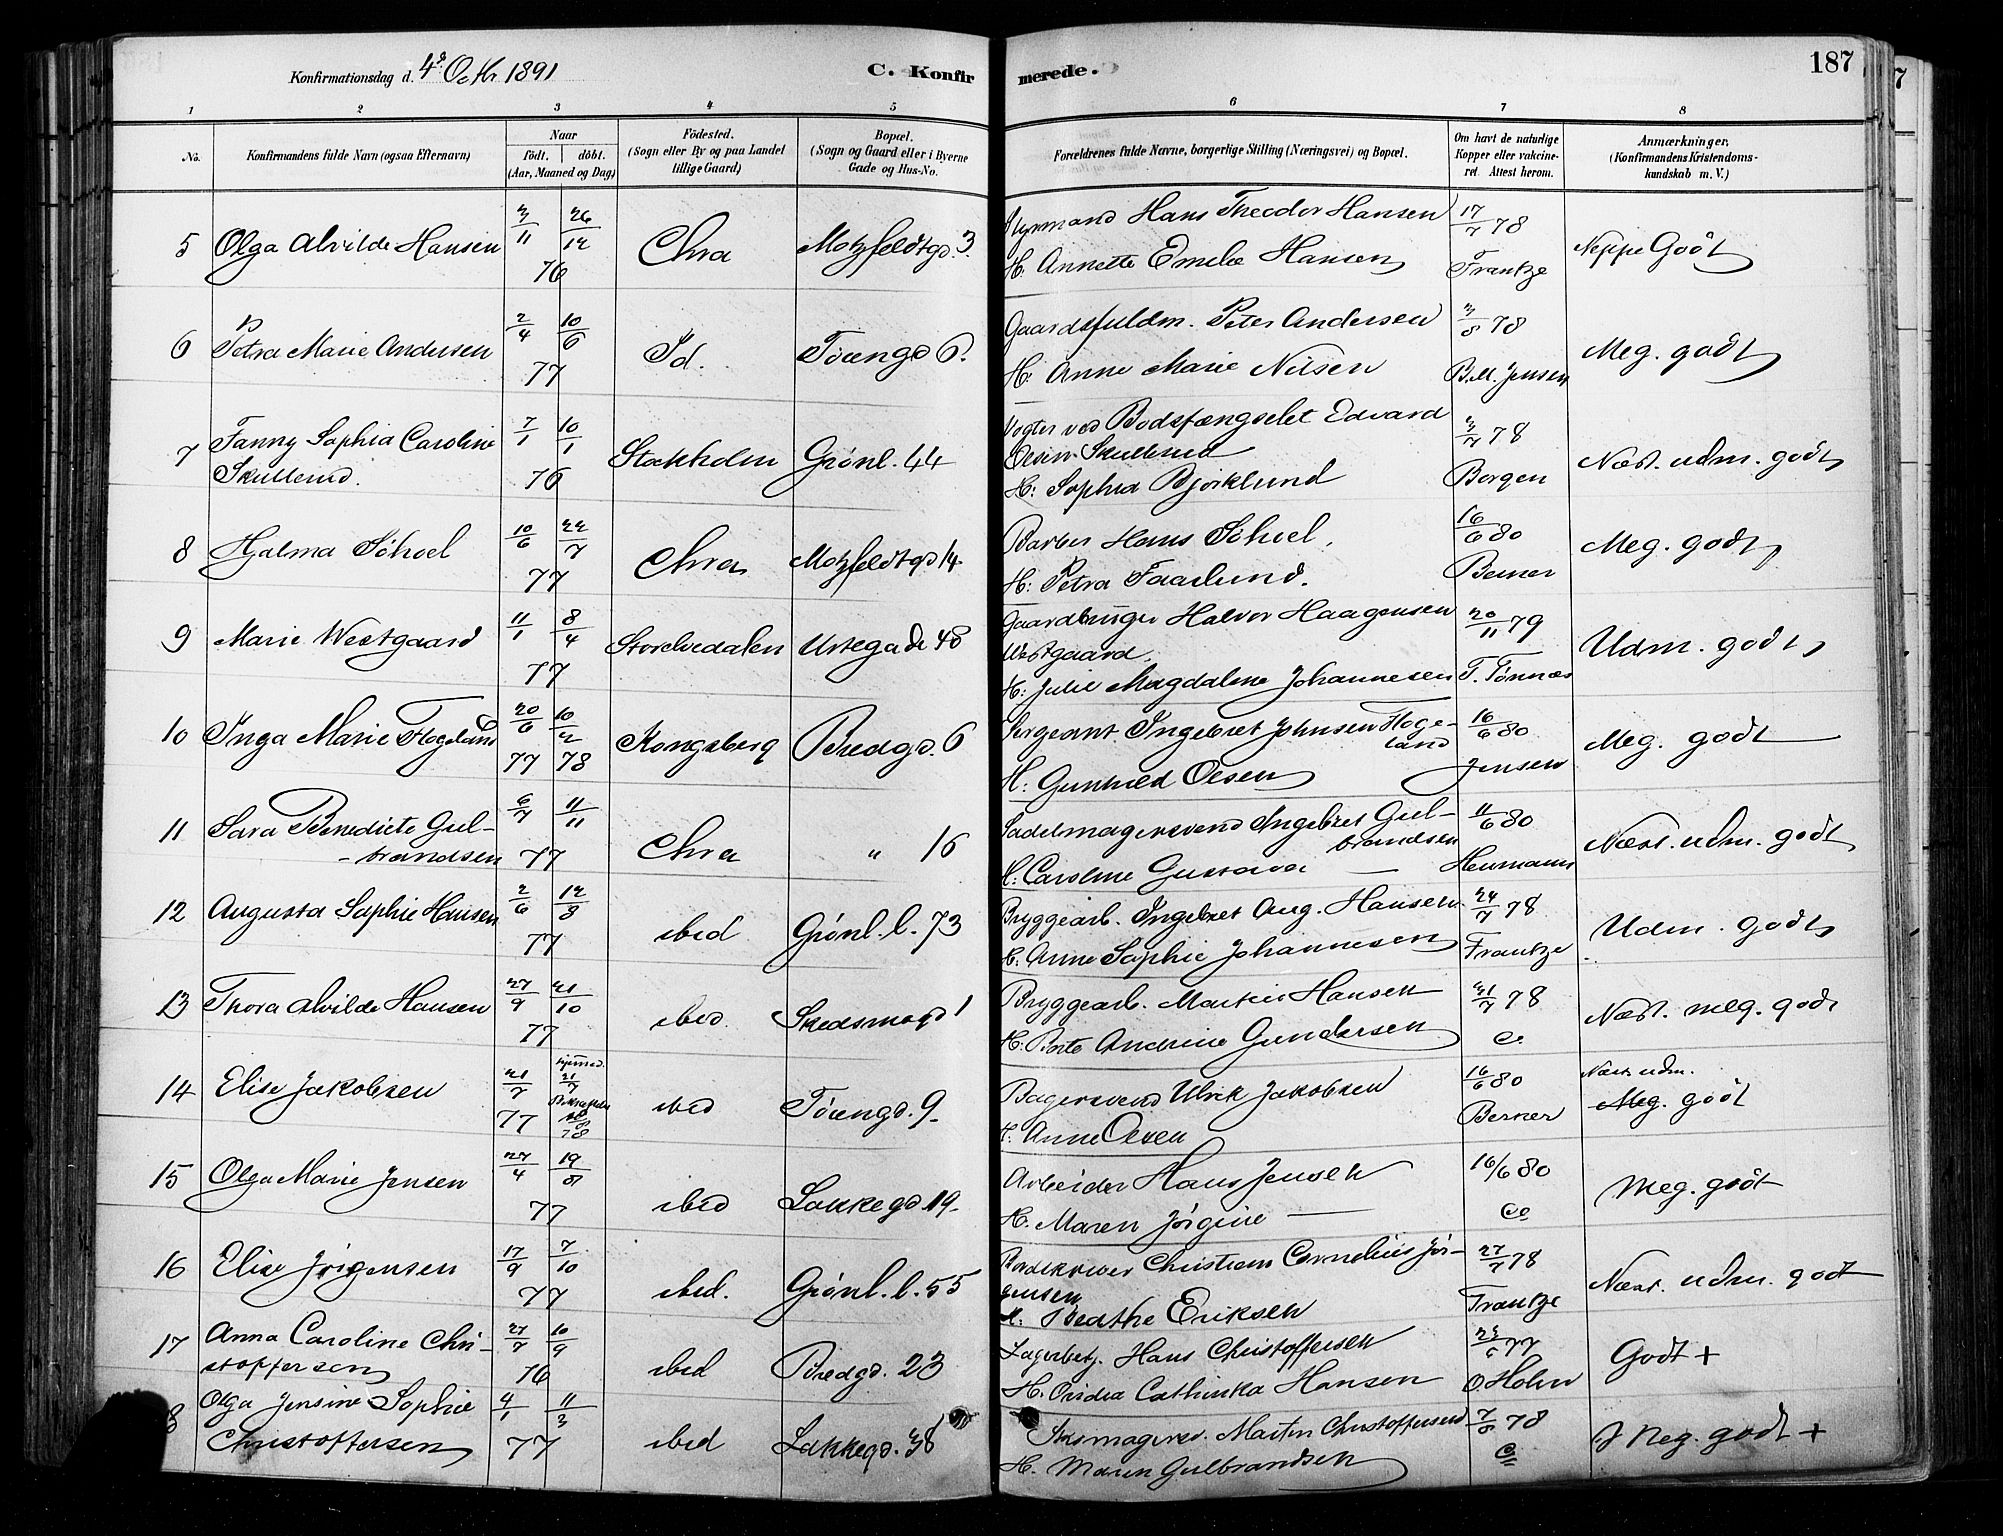 Konfirmationsdag d. 4de Octbr. 1891
C. Konfirmerede.
187
1 2 3 4 5 6 7 8
No. Konfirmandens fulde Navn (ogsaa Efternavn) Naar födt. döbt. (Aar, Maaned og Dag) Födested. (Sogn eller By og paa Landet tillige Gaard) Bopæl. (Sogn og Gaard eller i Byerne Gade og Hus-No. Forældrenes fulde Navne, borgerlige Stilling (Næringsvei) og Bopæl. Om havt de naturlige Kopper eller vakcineret. Attest herom. Anmærkninger. (Konfirmandens Kristendomskundskab m. V.)
5 Olga Alvilde Hansen 3/11 26/12 76 Chra Motzfeldtgd. 3. Styrmand Hans Theodor Hansen 17/7 78
H. Annette Emelie Hansen Frantze Neppe Godt
6 Petra Marie Andersen 2/4 10/6 77 Id. Töiengd 6. Gaardsfuldm. Peter Andersen 3/8 78
H: Anne Marie Nilsen B.M. Jensen Meg. godt
7 Fanny Sophia Caroline Skullerud. 7/1 10/1 76 Stockholm Grönl. 44 Vogter ved Bodsfængselet Edvard
Skullerud 78
H: Sophia Bjorklund Borgen Næst. udm. godt
8 Hjalma Söhoel 10/6 22/7 77 Chra Motzfeldtgd 14 Barber Hans Söhoel, 16/6 80
H: Petra Faarlund. Berner Meg. godt
9 Marie Westgaard 11/1 8/4 77 Storelvedalen Urtegade 48 Gaardbruger Halvor Haagensen
Westgaard. 20/11 79
H: Julie Magdalene Johannesen T. Tönnes Udm. godt
10 Inga Marie Flogeland 20/6 77 10/2 78 Kongsberg Bredgd. 6 Sergeant Ingebret Johnsen Flogeland 16/6 80
H: Gunhild Olsen Jensen Meg. godt
11 Sara Benedicte Gulbrandsen 6/7 11/11 77 Chra " 16 Sadelmagersvend Ingebret Gulbrandsen 11/6 80
H: Caroline Gustava — Heumann Næst. udm. godt
12 Augusta Sophie Hansen 2/6 12/8 77 ibid Grönl. l. 73 Bryggearb. Ingebret Aug. Hansen 24/7 78
H. Anne Sophie Johannesen Frantze Udm. godt
13 Thora Alvilde Hansen 27/9 21/10 77 ibid. Skedsmogd 1 Bryggearb. Martin Hansen 31/7 78
H: Berte Andrine Gundersen Næst. meg. godt
14 Elise Jakobsen 21/7 77 hjemmed. 21/7 78 ibid Töiengd. 9. Bagersvend Ulrik Jakobsen 16/6 80
H. Anne Olsen Berner Næst udm. Meg. godt
15 Olga Marie Jensen 27/4 19/8 77 ibid Lakkegd. 19. Arbeider Hans Jensen 16/6 80
H. Maren Jörgine — Meg. godt
16 Elise Jörgensen 17/9 7/10 77 ibid. Grönl. l. 55 Christian Cornelius Jörgensen 27/7 78
H. Beathe Eriksen Frantze Næst. udm. godt
17 Anna Caroline Christoffersen 27/7 10/9 76 ibid Bredgd. 23 Lagerbetj. Hans Christoffersen 77
H. Cathinka Hansen O. Holm Godt +
8 Olga Jensine Sophie Christoffersen 4/1 11/3 77 ibid Lakkegd. 38 Martin Christoffersen 7/8 78
H. Maren Gulbrandsen Meg. godt +